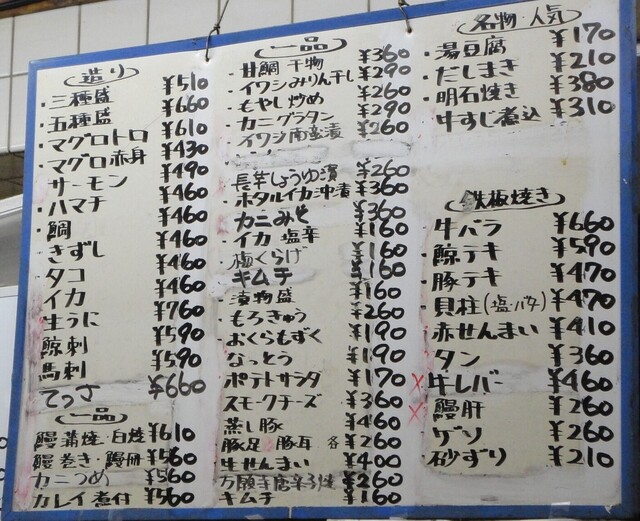 造り
・三種盛 ¥510
・五種盛 ¥660
・マグロトロ ¥610
・マグロ赤身 ¥430
・サーモン ¥490
・ハマチ ¥460
・鯛 ¥460
・きずし ¥460
・タコ ¥460
・イカ ¥460
・生うに ¥760
・鯨刺 ¥590
・馬刺 ¥590
てっさ ¥660
一品
鰻蒲焼・白焼 ¥610
鰻巻き・鰻冊 ¥560
カニつめ ¥560
カレイ煮付 ¥560
一品
・甘鯛干物 ¥360
・イワシみりん干し ¥290
・もやし炒め ¥260
・カニグラタン ¥290
・イワシ南蛮漬 ¥260
・長芋しょうゆ漬 ¥260
・ホタルイカ沖漬 ¥360
・カニみそ ¥360
・イカ塩辛 ¥160
・梅くらげ ¥160
・キムチ ¥160
・漬物盛 ¥160
・もろきゅう ¥260
・おくらもずく ¥190
・なっとう ¥190
ポテトサラダ ¥170
スモークチーズ ¥360
蒸し豚 ¥460
豚足 豚耳 各 ¥260
生せんまい ¥400
万願寺唐辛子 ¥260
キムチ ¥160
名物・人気
・湯豆腐 ¥170
・だしまき ¥210
・明石焼き ¥380
・牛すじ煮込 ¥310
鉄板焼き
・牛バラ ¥660
・鯨テキ ¥590
・豚テキ ¥470
・貝柱(塩・バター) ¥470
・赤せんまい ¥410
・タン ¥360
・牛レバー ¥460
・鰻肝 ¥260
・ゲソ ¥260
・砂ずり ¥210